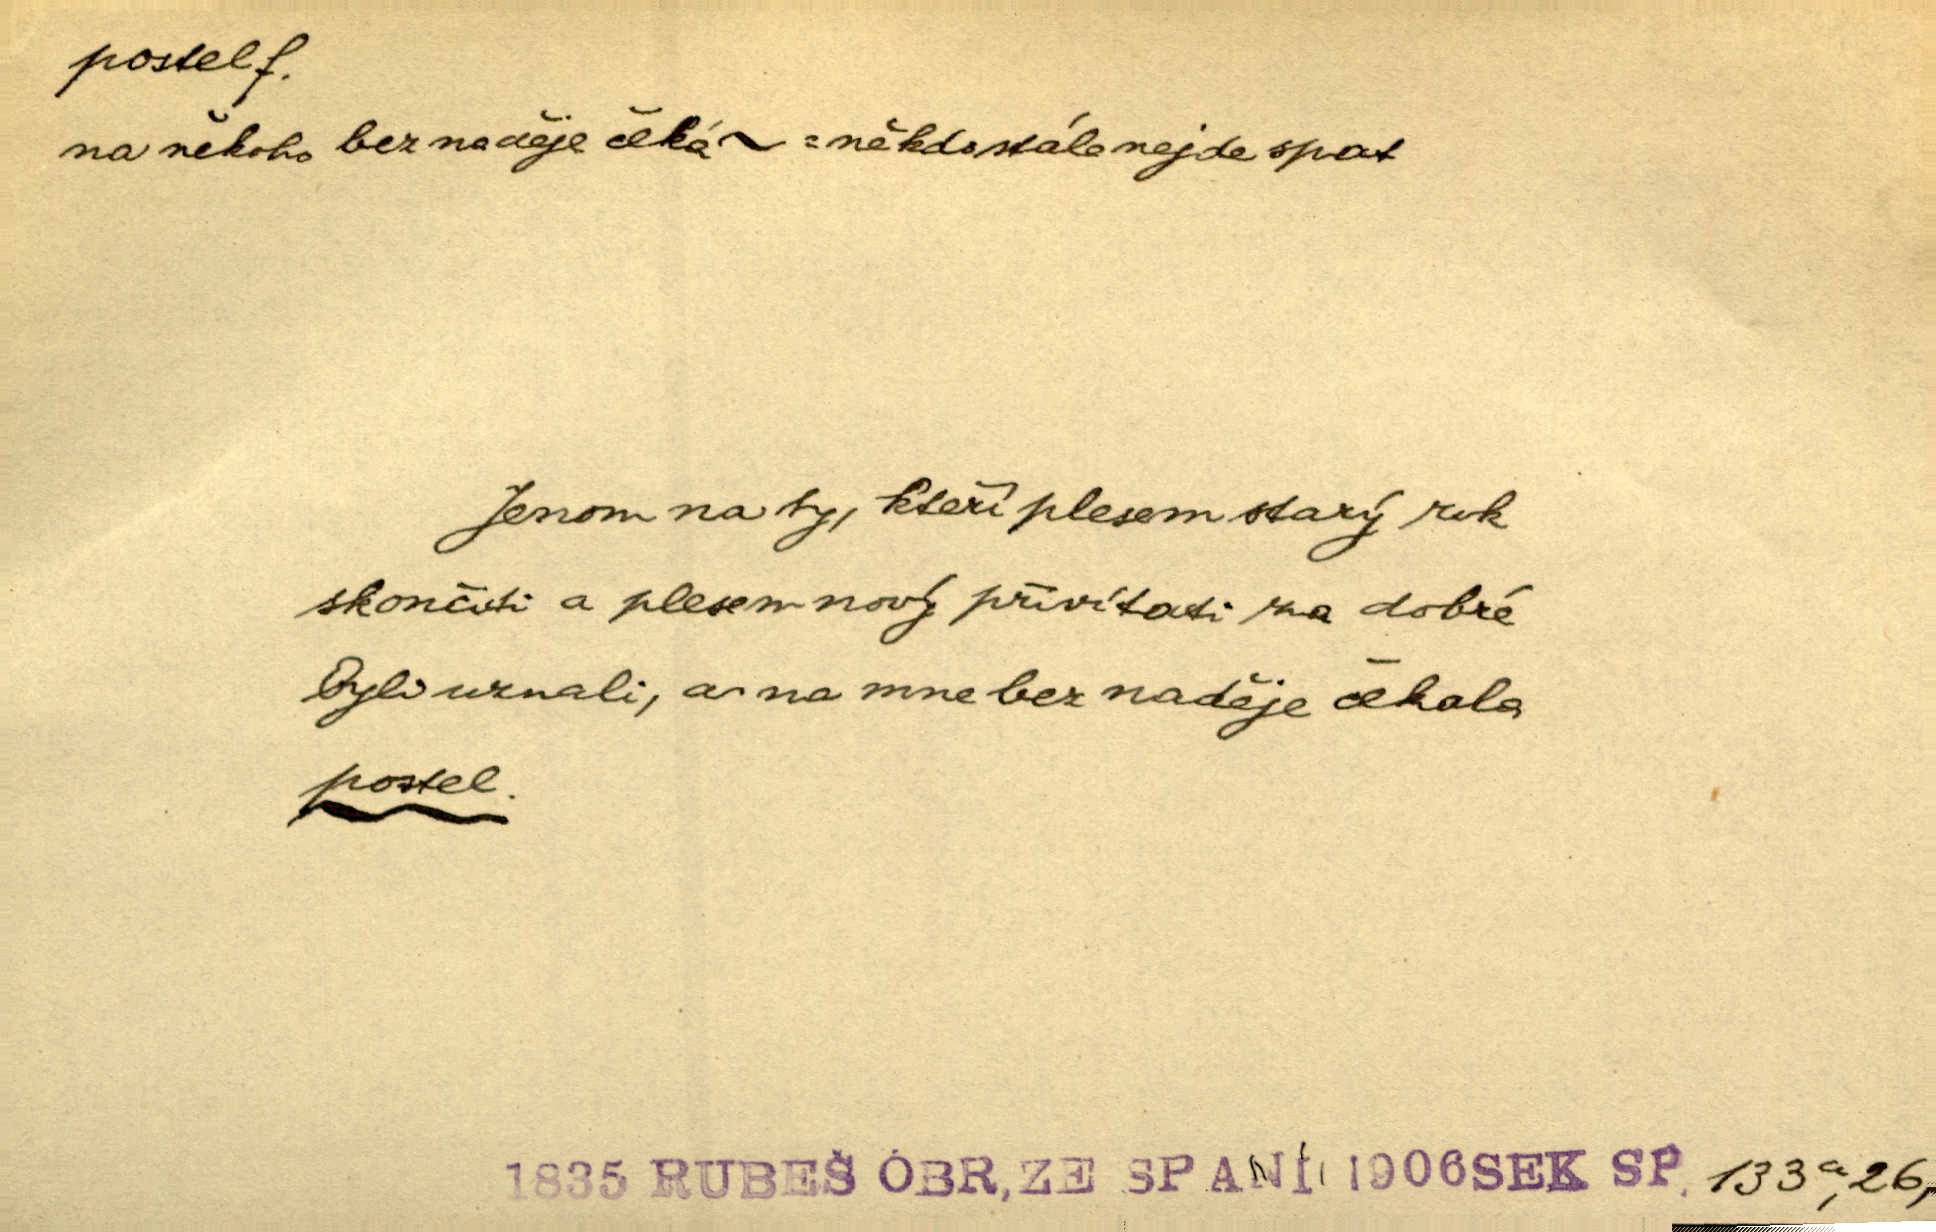 postel f.
na někoho bez naděje čeká ~ = někdo stále nejde spat
Jenom na ty, kteří plesem starý rok
skončiti a plesem nový přivítati za dobré
byli uznali, a na mne bez naděje čekala
postel.
1835 RUBEŠ OBR, ZE SPANÍ 1906 SEK SP. 133a, 26,